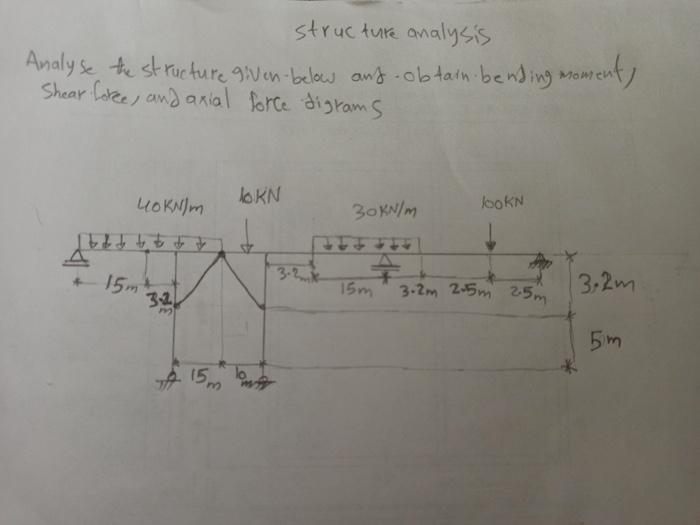 structure analysis
Analyse the structure given below and obtain bending moment,
Shear force, and axial force digrams
40KN/m
10KN
30KN/m
100KN
15m
3.2
m
3.2m
15m
3.2m
2.5m
2.5m
3.2m
5m
15m